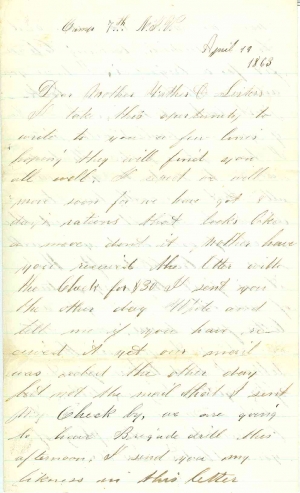 Camp 7th N.J.V.
April 19
1863
Dear Mother Father & Sisters
I take this oportunity to
write to you a few lines
hoping they will find you
all well. I we will
move soon for we have got 8
days rations that looks like
a move dont it Mother have
you received the letter with
the Check for $30 I sent you
the other day Write and
tell me if you have re-
ceived it yet our mail
was robed the other day
but not the mail that I sent
my Check by, we are going
to have Brigade drill this
afternoon, I send you my
likeness in this letter